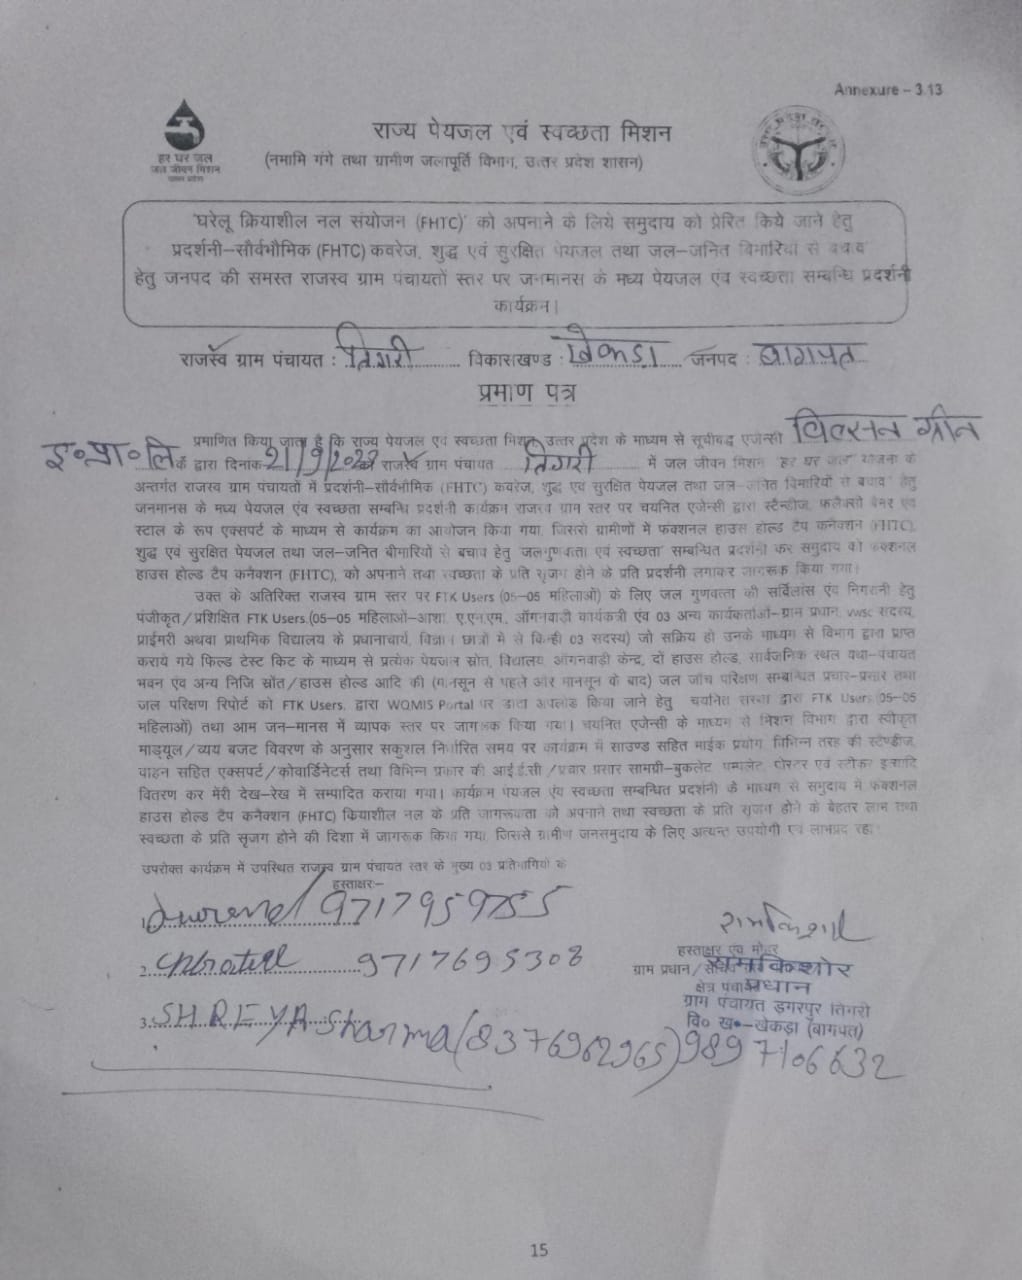 Annexure – 3.13
हर घर जल
जल जीवन मिशन
राज्य पेयजल एवं स्वच्छता मिशन
(नमामि गंगे तथा ग्रामीण जलापूर्ति विभाग, उत्तर प्रदेश शासन)
'घरेलू क्रियाशील नल संयोजन (FHTC)' को अपनाने के लिये समुदाय को प्रेरित किये जाने हेतु
प्रदर्शनी–सौर्वभौमिक (FHTC) कवरेज, शुद्ध एवं सुरक्षित पेयजल तथा जल–जनित बिमारियों से बचाव
हेतु जनपद की समस्त राजस्व ग्राम पंचायतों स्तर पर जनमानस के मध्य पेयजल एंव स्वच्छता सम्बन्धि प्रदर्शनी
कार्यक्रन।
राजस्व ग्राम पंचायत : तिगरी विकासखण्ड : खेकडा जनपद : बागपत
प्रमाण पत्र
प्रमाणित किया जाता है कि राज्य पेयजल एवं स्वच्छता मिशन उत्तर प्रदेश के माध्यम से सूचीबद्ध एजेन्सी विल्सन ग्रीन
इ०प्रा०लि के द्वारा दिनांक 21/9/2022 को राजस्व ग्राम पंचायत तिगरी में जल जीवन मिशन "हर घर जल" योजना के
अन्तर्गत राजस्व ग्राम पंचायतों में प्रदर्शनी–सौर्वभौमिक (FHTC) कवरेज, शुद्ध एवं सुरक्षित पेयजल तथा जल–जनित बिमारियों से बचाव हेतु
जनमानस के मध्य पेयजल एंव स्वच्छता सम्बन्धि प्रदर्शनी कार्यक्रम राजस्व ग्राम स्तर पर चयनित एजेन्सी द्वारा स्टैन्डीज, फलैक्सी बैनर एवं
स्टाल के रूप एक्सपर्ट के माध्यम से कार्यक्रम का आयोजन किया गया, जिससे ग्रामीणों में फंक्शनल हाउस होल्ड टैप कनैक्शन (FHTC),
शुद्ध एवं सुरक्षित पेयजल तथा जल–जनित बीमारियों से बचाव हेतु 'जलगुणवत्ता एवं स्वच्छता' सम्बन्धित प्रदर्शनी कर समुदाय को फंक्शनल
हाउस होल्ड टैप कनैक्शन (FHTC), को अपनाने तथा स्वच्छता के प्रति सृजग होने के प्रति प्रदर्शनी लगाकर जागरूक किया गया।
उक्त के अतिरिक्त राजस्व ग्राम स्तर पर FTK Users (05–05 महिलाओं) के लिए जल गुणवत्ता की सर्विलांस एंव निगरानी हेतु
पंजीकृत/प्रशिक्षित FTK Users.(05–05 महिलाओं–आशा, ए.एन.एम, ऑगनवाड़ी कार्यकत्री एंव 03 अन्य कार्यकर्ताओं–ग्राम प्रधान, vwsc सदस्य,
प्राईमरी अथवा प्राथमिक विद्यालय के प्रधानाचार्य, विज्ञान छात्रों में से किन्ही 03 सदस्य) जो सक्रिय हो उनके माध्यम से विभाग द्वारा प्राप्त
कराये गये फिल्ड टेस्ट किट के माध्यम से प्रत्येक पेयजल स्रोत, विद्यालय, ऑगनवाड़ी केन्द्र, दों हाउस होल्ड, सार्वजनिक स्थल यथा–पंचायत
भवन एंव अन्य निजि स्रोंत/हाउस होल्ड आदि की (मानसून से पहले और मानसून के बाद) जल जॉच परिक्षण सम्बन्धित प्रचार–प्रसार तथा
जल परिक्षण रिपोर्ट को FTK Users. द्वारा WQMIS Portal पर डाटा अपलोड किया जाने हेतु चयनित संस्था द्वारा FTK Users (05–05
महिलाओं) तथा आम जन–मानस में व्यापक स्तर पर जागरूक किया गया। चयनित एजेन्सी के माध्यम से मिशन विभाग द्वारा स्वीकृत
माड्यूल/व्यय बजट विवरण के अनुसार सकुशल निर्धारित समय पर कार्यक्रम में साउण्ड सहित माईक प्रयोग, विभिन्न तरह की स्टैण्डीज,
वाहन सहित एक्सपर्ट/कोवार्डिनेटर्स तथा विभिन्न प्रकार की आई.ई.सी/प्रचार प्रसार सामग्री–बुकलेट, पम्पलेट, पोस्टर एवं स्टीकर इत्यादि
वितरण कर मेरी देख–रेख में सम्पादित कराया गया। कार्यक्रम पेयजल एंव स्वच्छता सम्बन्धित प्रदर्शनी के माध्यम से समुदाय में फंक्शनल
हाउस होल्ड टैप कनैक्शन (FHTC) कियाशील नल के प्रति जागरूकता को अपनाने तथा स्वच्छता के प्रति सृजग होने के बेहतर लाभ तथा
स्वच्छता के प्रति सृजग होने की दिशा में जागरूक किया गया, जिससे ग्रामीण जनसमुदाय के लिए अत्यन्त उपयोगी एवं लाभप्रद रहा।
उपरोक्त कार्यक्रम में उपस्थित राजस्व ग्राम पंचायत स्तर के मुख्य 03 प्रतिभागियों के
हस्ताक्षर:–
1. 9717959755
2. 9717695308
3. SHREYA Sharma (8376962965)
रामकिशोर
हस्ताक्षर एंव मोहर
ग्राम प्रधान/ रामकिशोर
प्रधान
ग्राम पंचायत डगरपुर तिगरी
वि० ख०–खेकड़ा (बागपत)
9897106632
15